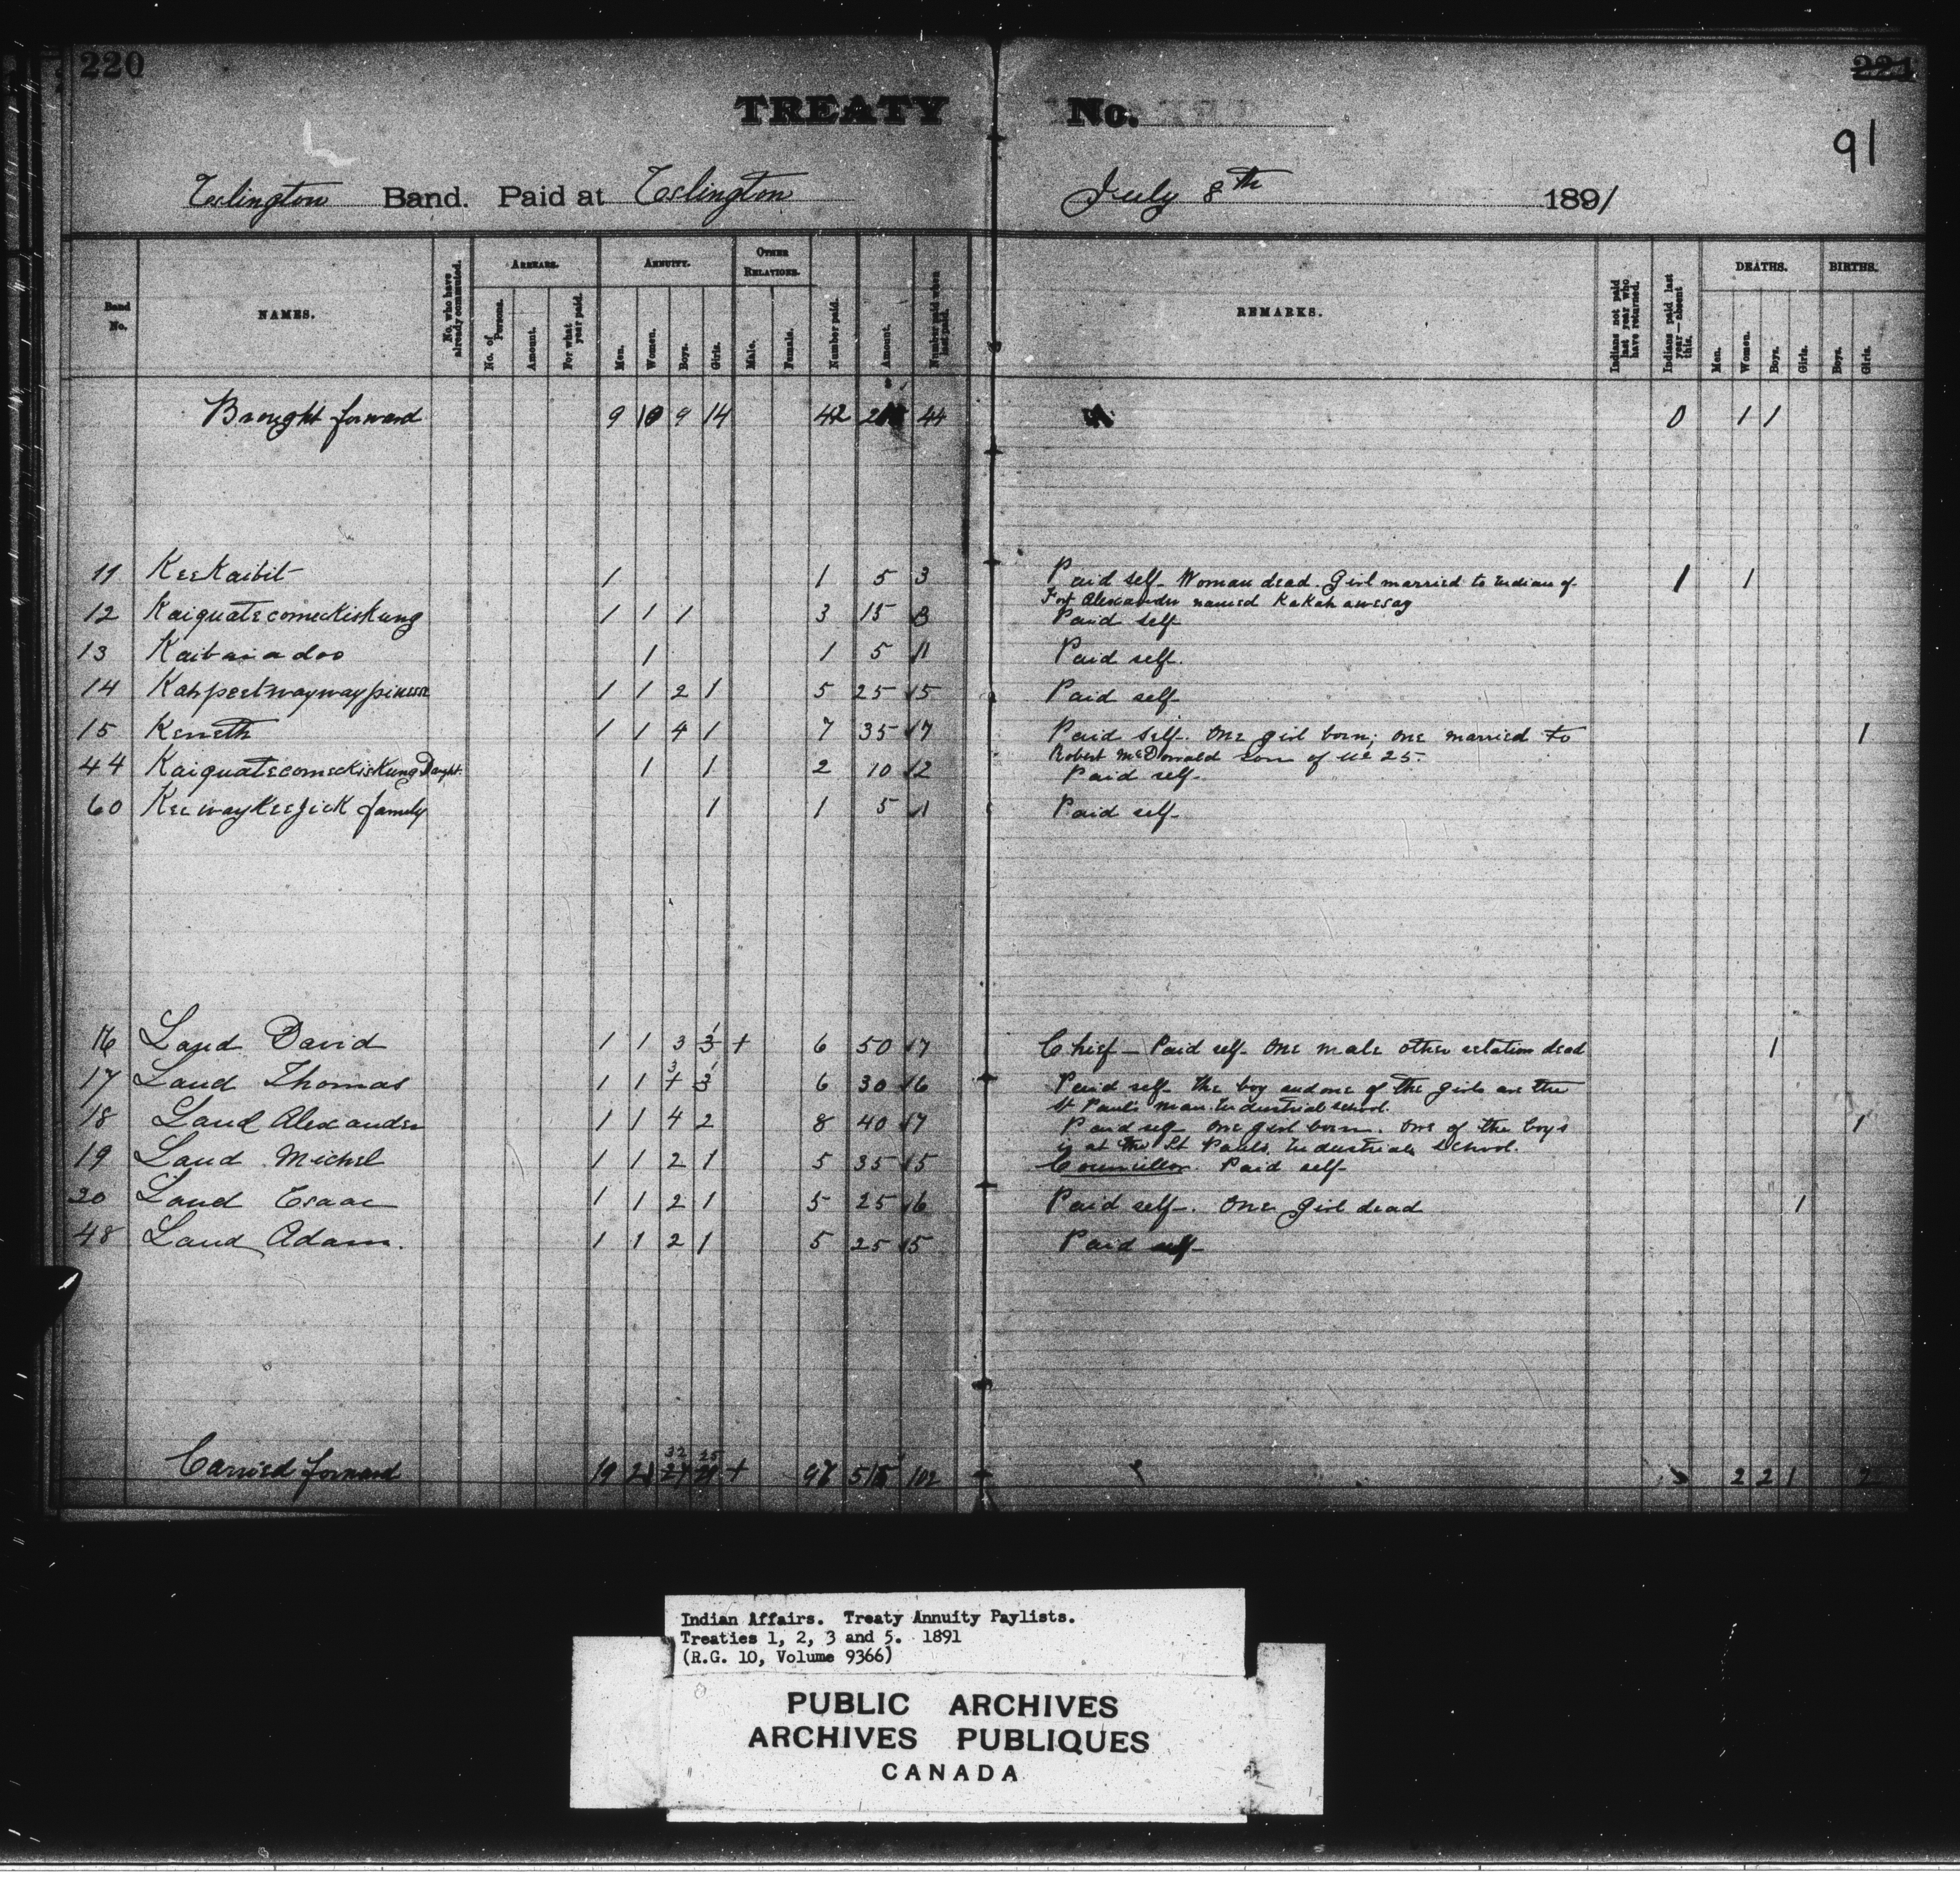 220
221
TREATY No.
91
Eslington Band. Paid at Eslington July 8th 1891
Band No. NAMES. No. who have already commuted. ARREARS. No. of Persons. Amount. For what year paid. ANNUITY. Men. Women. Boys. Girls. OTHER RELATIONS. Male. Female. Number paid. Amount. Number paid when last paid. REMARKS. Indians not paid last year who have returned. Indians paid last year—absent this. DEATHS. Men. Women. Boys. Girls. BIRTHS. Boys. Girls.
Brought forward 9 10 9 14 42 44 0 1 1
11 KeeKaibit 1 1 5 3 Paid self- Woman dead. Girl married to Indian of 1 1
Fort Alexander named Kakahawesag
12 KaiquatecomecKisKung 1 1 1 3 15 3 Paid self
13 Kaibaiadoo 1 1 5 1 Paid self.
14 Kahpeetwaywaypinesse 1 1 2 1 5 25 5 Paid self-
15 Kenneth 1 1 4 1 7 35 7 Paid self. One girl born; one married to 1
Robert McDonald son of No 25.
44 KaiquatecomecKisKung Daught. 1 1 2 10 2 Paid self-
60 KeewayKeeJicK family 1 1 5 1 Paid self-
16 Land David 1 1 3 3 1 + 6 50 7 Chief - Paid self- One male other relation dead 1
17 Land Thomas 1 1 3 + 3 1 6 30 6 Paid self- The boy and one of the girls are the
St Paul's Man. Industrial School.
18 Land Alexander 1 1 4 2 8 40 7 Paid self One girl born. One of the boys 1
is at the St Pauls Industrial School.
19 Land Michel 1 1 2 1 5 35 5 Councillor. Paid self-
20 Land Esaac 1 1 2 1 5 25 6 Paid self-. One Girl dead 1
48 Land Adam. 1 1 2 1 5 25 5 Paid self-
Carried forward 19 21 32 25 + 97 515 102 2 2 1 2
Indian Affairs. Treaty Annuity Paylists.
Treaties 1, 2, 3 and 5. 1891
(R.G. 10, Volume 9366)
PUBLIC ARCHIVES
ARCHIVES PUBLIQUES
CANADA